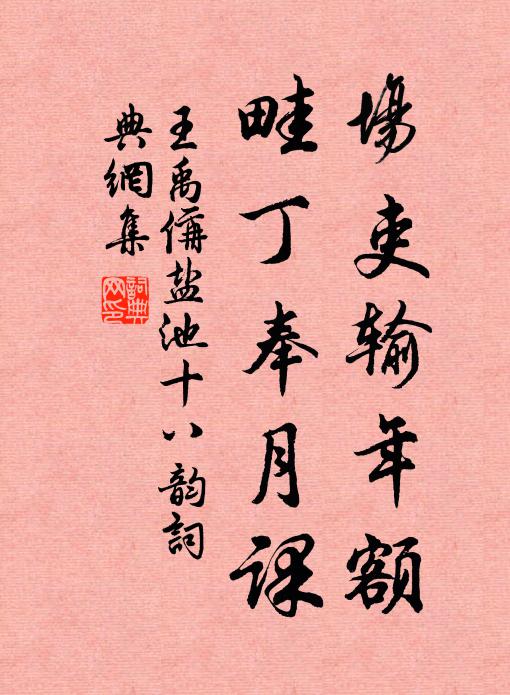 場吏输年額
畦丁奉月課
王禹偁盐池十八韵詞
典網集
詞典网印